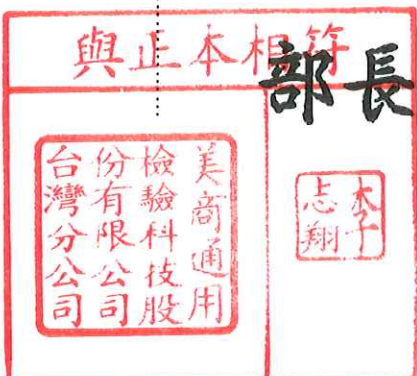 與正本相符
部長
美商通用
檢驗科技股
份有限公司
台灣分公司
李
志翔